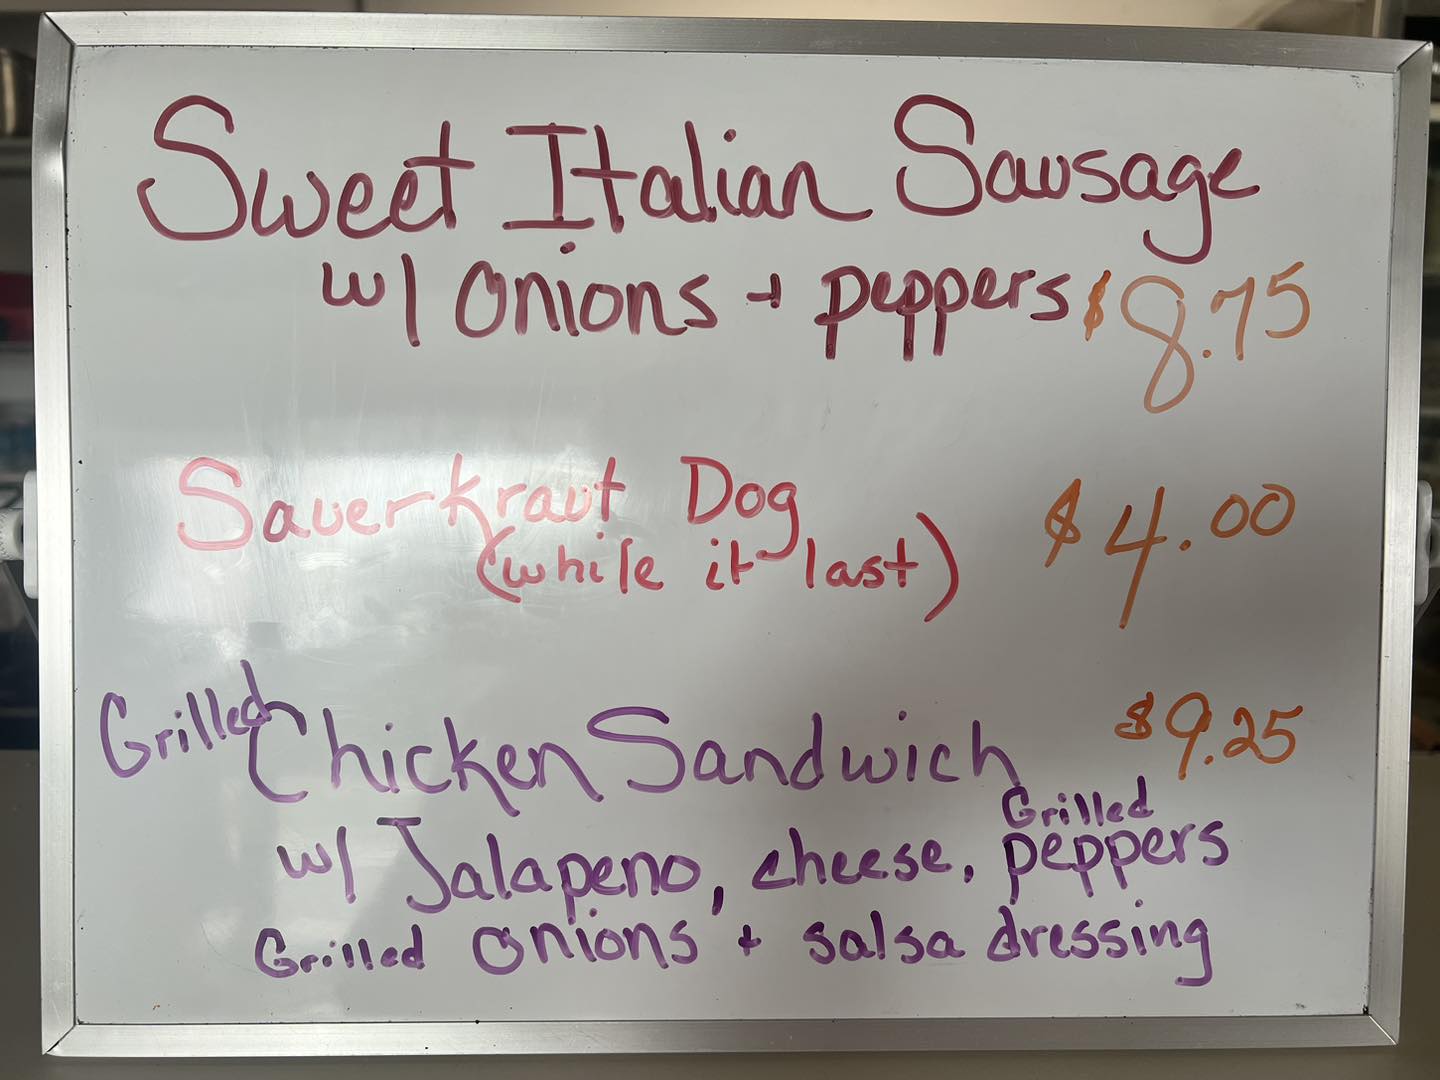 Sweet Italian Sausage
w/ onions + peppers $8.75
Sauerkraut Dog $4.00
(while it last)
Grilled Chicken Sandwich $9.25
w/ Jalapeno, cheese, Grilled peppers
Grilled onions + salsa dressing